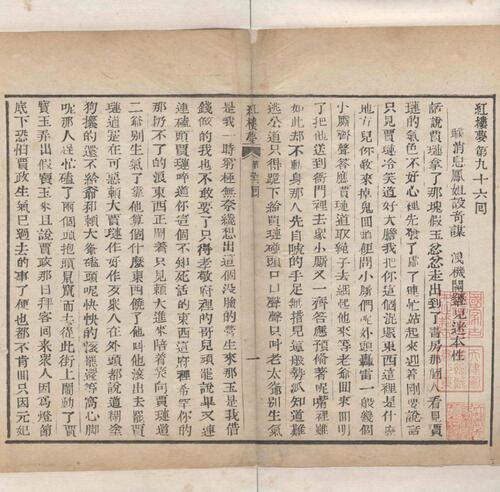 紅樓夢第九十六回
瞞消息鳳姐設奇謀　洩機關顰兒迷本性
話說賈璉拿了那塊假玉忿忿走出到了書房那個人看見賈
璉的氣色不好心裡先發了虛了連忙站起來迎著剛要說話
只見賈璉冷笑道好大膽我把你這個混賬東西這裡是什麽
地方兒你敢來掉鬼回頭便問小廝們呢外頭轟雷一般幾個
小廝齊聲答應賈璉道取繩子去綑起他來等老爺回來問明
了把他送到衙門裡去衆小廝又一齊答應預備着呢嘴裡雖
如此却不動那人先自唬的手足無措見這般勢派知道難
逃公道只得跪下給賈璉碰頭口口聲聲只叫老太爺別生氣
紅樓夢
一
是我一時窮極無奈纔想出這個沒臉的營生來那玉是我借
錢做的我也不敢要了只得孝敬府裡的哥兒頑罷說畢又連
連磕頭賈璉啐道你這個不知死活的東西這府裡希罕你的
那扔不了的浪東西正鬧着只見賴大進來陪着笑向賈璉道
二爺別生氣了靠他算個什麽東西饒了他叫他滾出去罷賈
璉道實在可惡賴大賈璉作好作歹衆人在外頭都說道糊塗
狗攮的還不給爺和賴大爺磕頭呢快快的滾罷還等窩心脚
呢那人趕忙磕了兩個頭抱頭鼠竄而去從此街上鬧動了賈
寶玉弄出假寶玉來且說賈政那日拜客回來衆人因爲燈節
底下恐怕賈政生氣已過去的事了便也都不肯回只因元妃